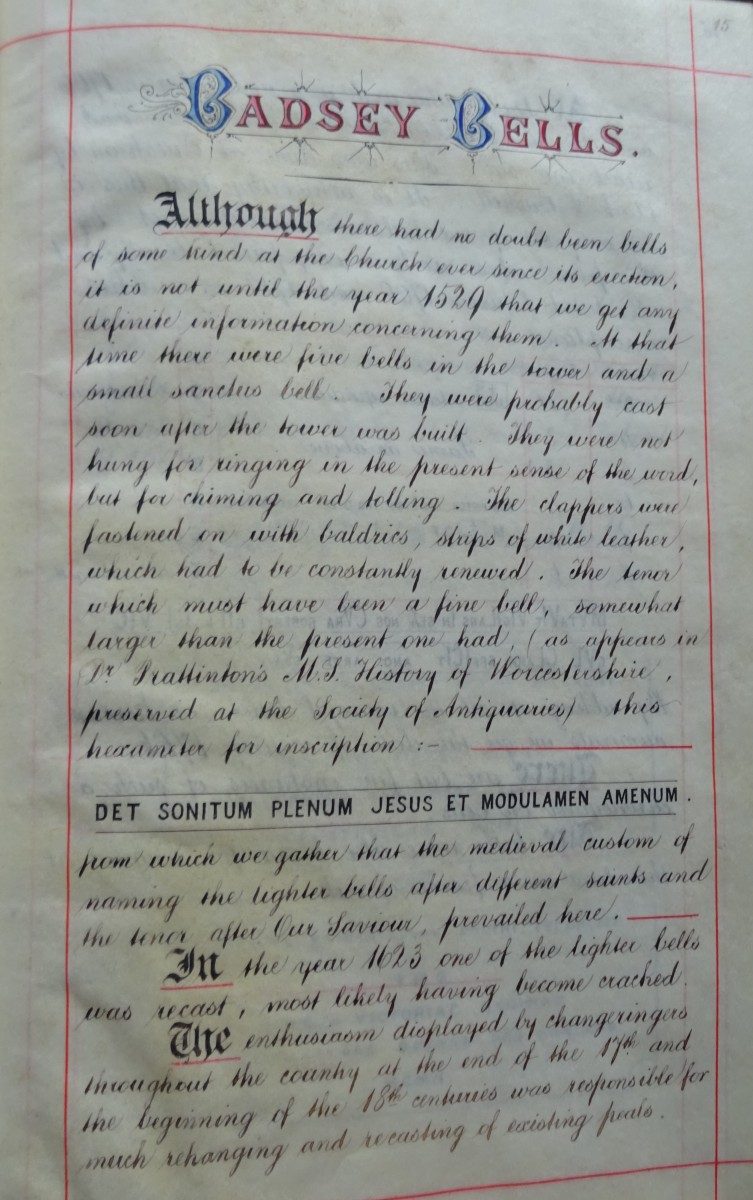 15
BADSEY BELLS.
Although there had no doubt been bells
of some kind at the Church ever since its erection,
it is not until the year 1529 that we get any
definite information concerning them. At that
time there were five bells in the tower and a
small sanctus bell. They were probably cast
soon after the tower was built. They were not
hung for ringing in the present sense of the word,
but for chiming and tolling. The clappers were
fastened on with baldrics, strips of white leather,
which had to be constantly renewed. The tenor
which must have been a fine bell, somewhat
larger than the present one had, (as appears in
Dr Prattinton's M.S. History of Worcestershire,
preserved at the Society of Antiquaries) this
hexameter for inscription :-
DET SONITUM PLENUM JESUS ET MODULAMEN AMENUM.
from which we gather that the medieval custom of
naming the lighter bells after different saints and
the tenor after Our Saviour, prevailed here.
In the year 1623 one of the lighter bells
was recast, most likely having become cracked.
The enthusiasm displayed by changeringers
throughout the country at the end of the 17th and
the beginning of the 18th centuries was responsible for
much rehanging and recasting of existing peals.